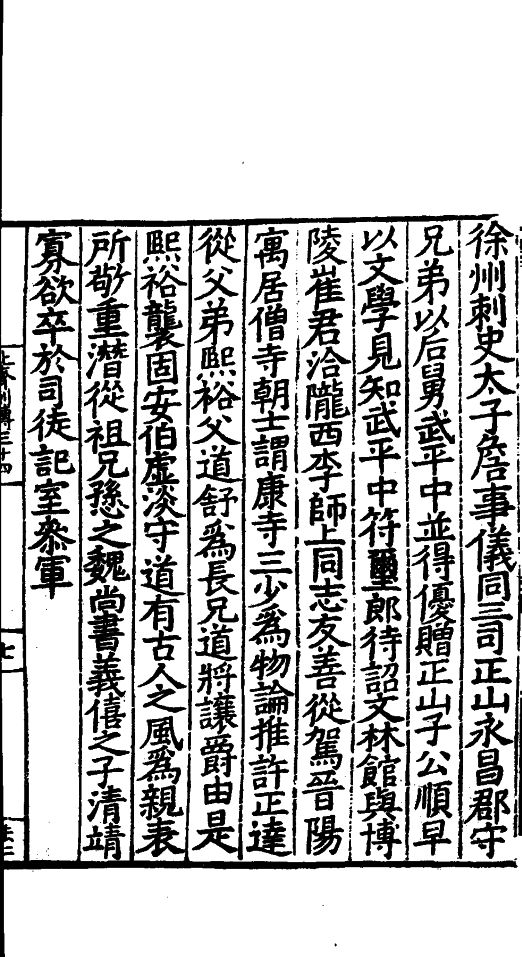 徐州刺史太子詹事儀同三司正山永昌郡守
兄弟以后舅武平中並得優贈正山子公順早
以文學見知武平中符璽郎待詔文林館與博
陵崔君洽隴西李師上同志友善從駕晉陽
寓居僧寺朝士謂康寺三少爲物論推許正達
從父弟熙裕父道舒爲長兄道將讓爵由是
熙裕襲固安伯虛淡守道有古人之風爲親表
所敬重潛從祖兄愻之魏尚書義僖之子清靖
寡欲卒於司徒記室參軍
三十四
七